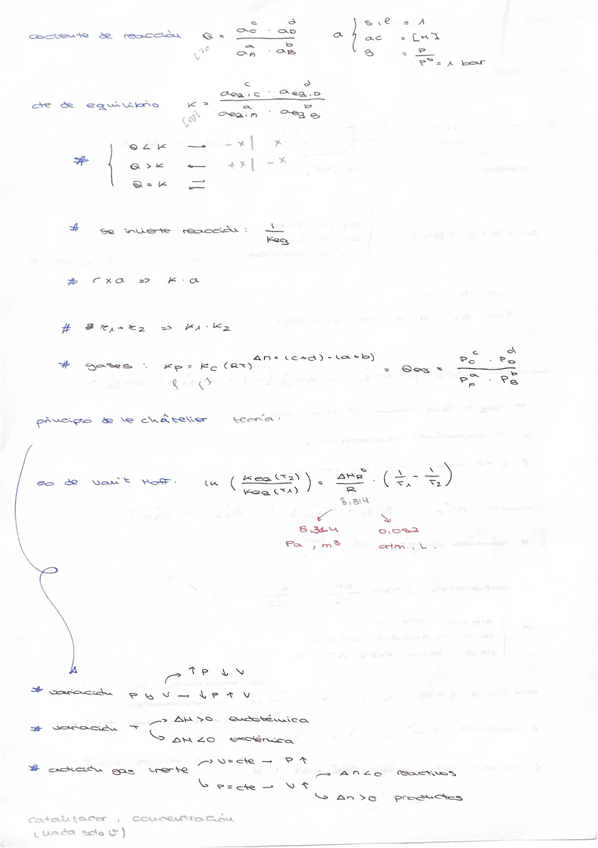 cociente de reacción Q = a_C^c · a_D^d / a_A^a · a_B^b   a { s, l = 1
ac = [M]
g = P / P^0 = 1 bar
cte de equilibrio K = a_eq,C^c · a_eq,D^d / a_eq,A^a · a_eq,B^b
* { Q < K → -x | x
Q > K ← +x | -x
Q = K ⇌
* se invierte reacción: 1 / Keq
* r x a => K · a
* r1 + r2 => K1 · K2
* gases: Kp = Kc (RT)^Δn = (c+d) - (a+b) = Qeq = P_C^c · P_D^d / P_A^a · P_B^b
principio de le châtelier teoría.
eq de van't Hoff. ln ( Keq (T2) / Keq (T1) ) = ΔH_R^0 / R · ( 1/T1 - 1/T2 )
8,314
8,314 0,082
Pa, m³ atm, L.
↑ P ↓ V
* variación P y V → ↓ P ↑ V
* variación T → ΔH > 0 endotérmica
↳ ΔH < 0 exotérmica
* adición gas inerte → V = cte → P ↑
↳ P = cte → V ↑ → Δn < 0 reactivos
↳ Δn > 0 productos
catalizador, concentración
(nada solo v)